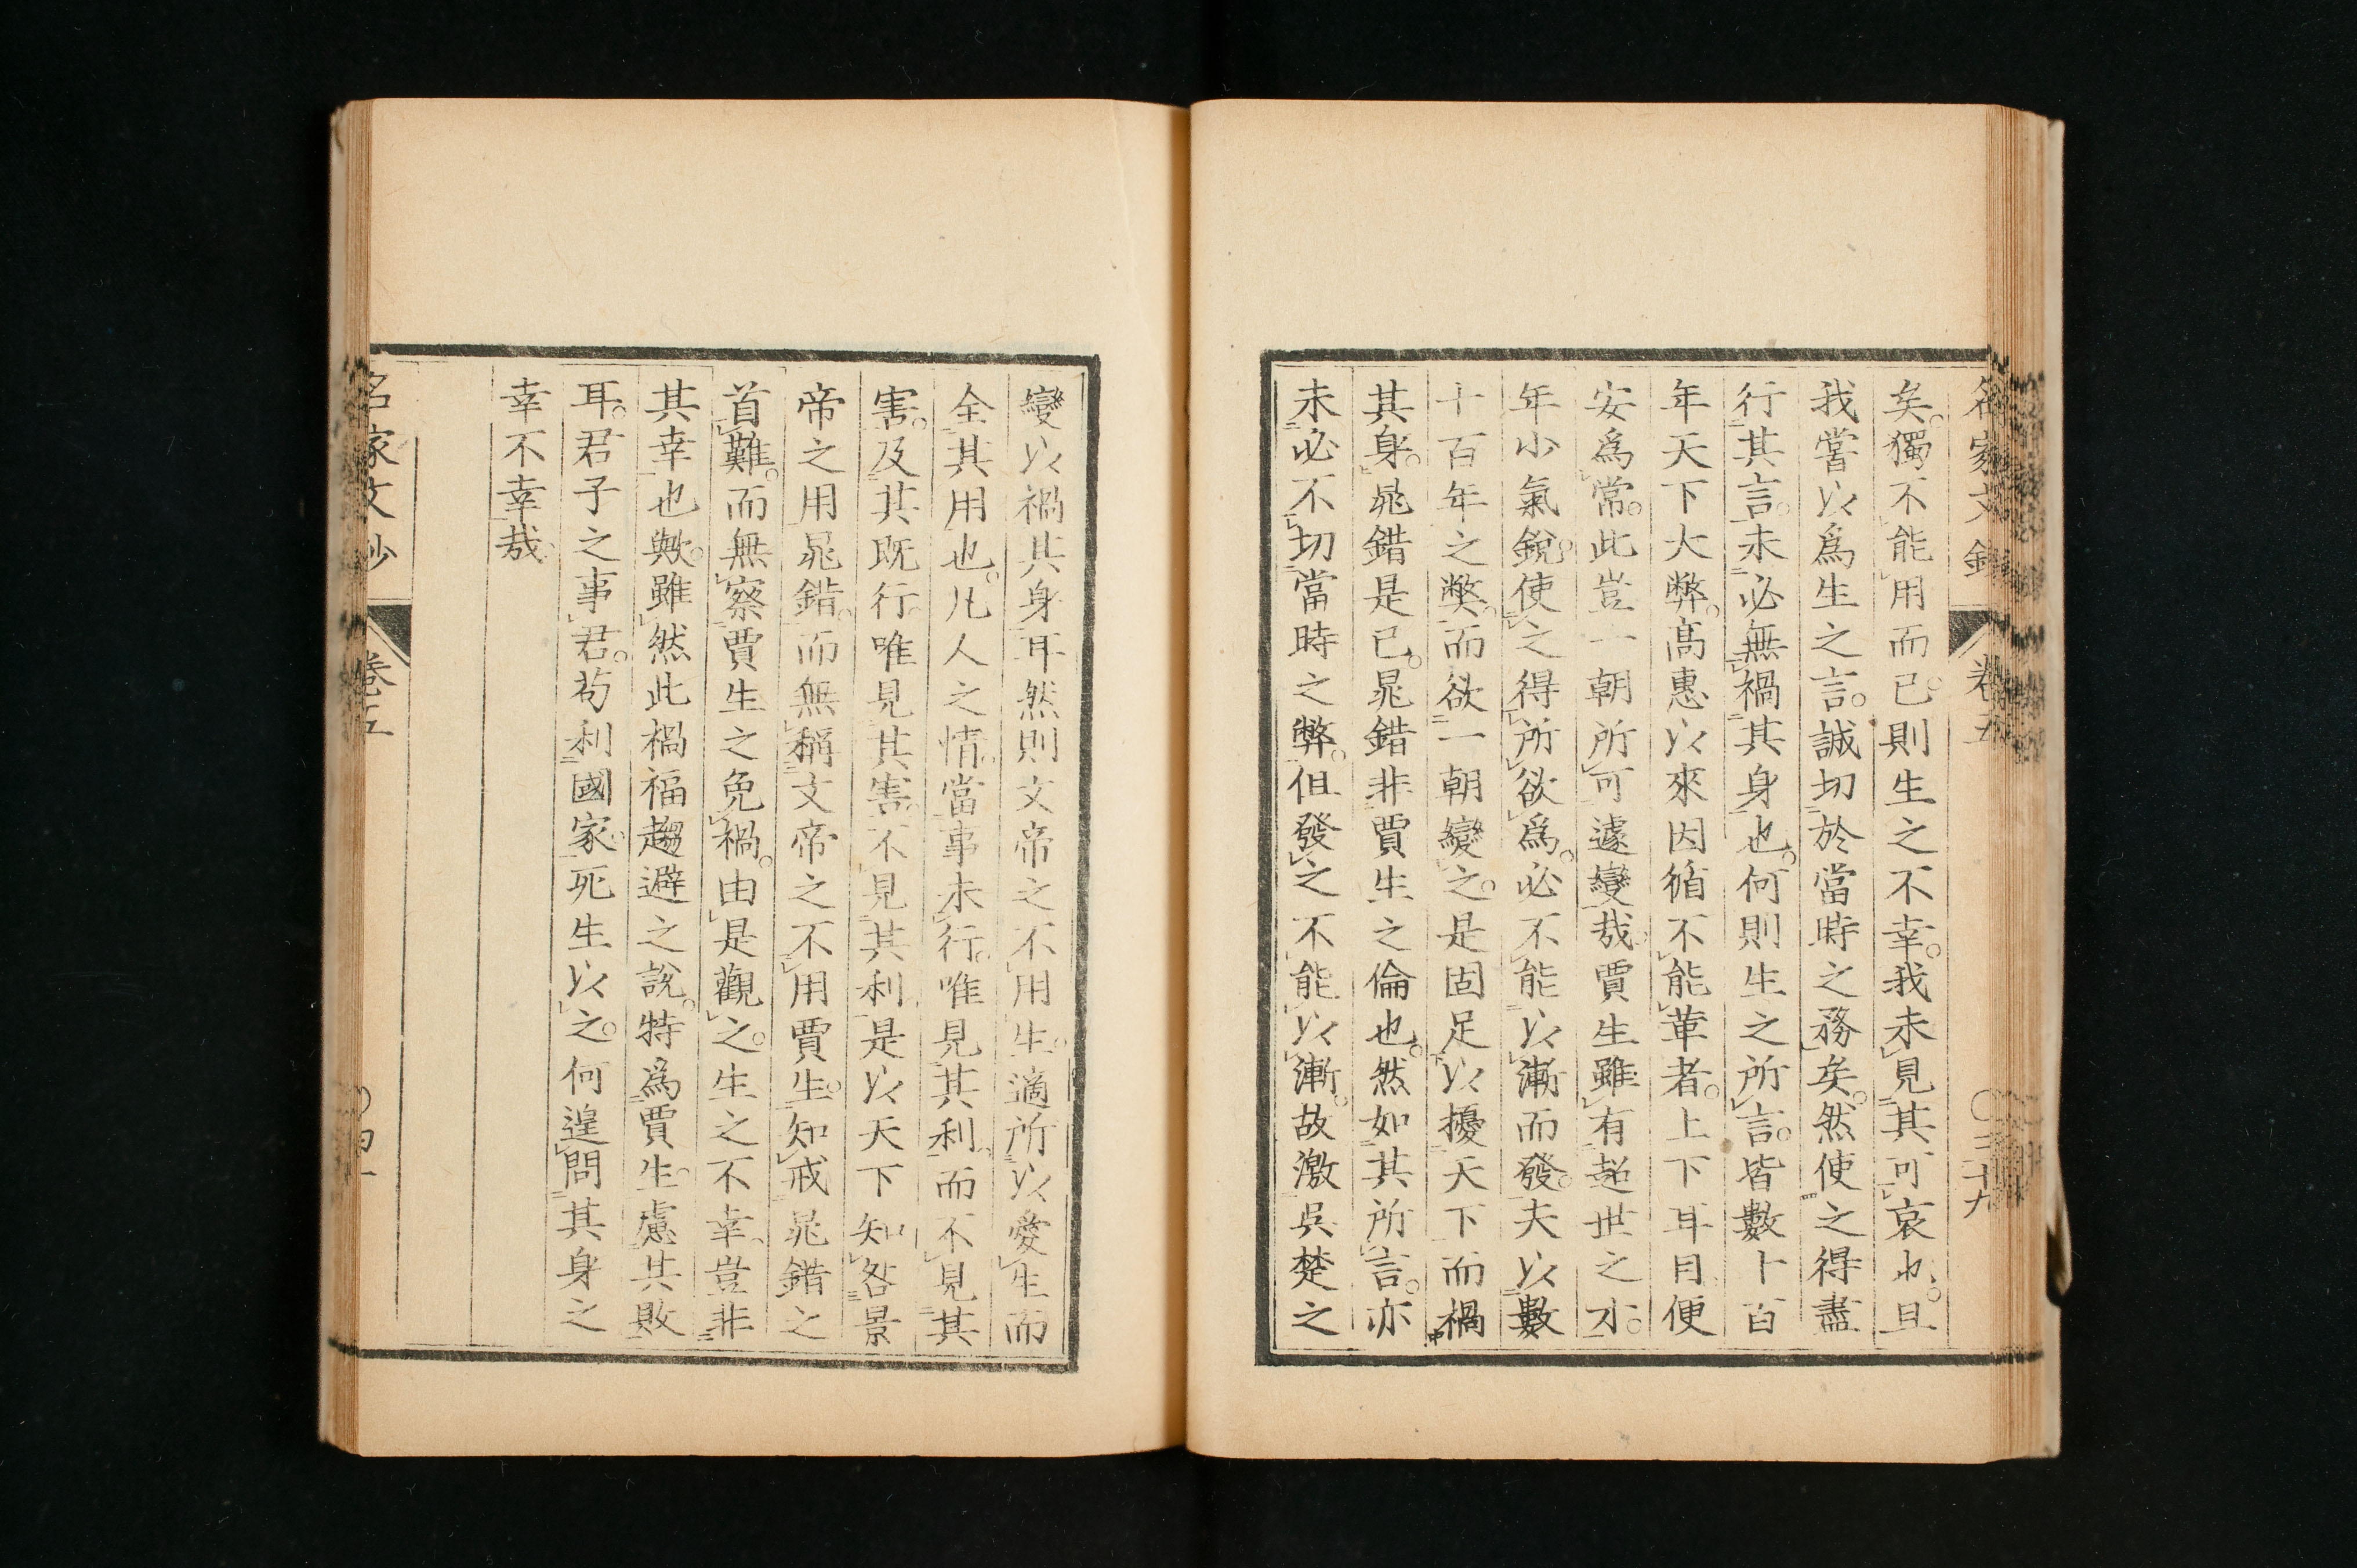 名家文鈔 卷五 〇三十九
矣。獨不能用而已。則生之不幸。我未見其可哀也。且
我嘗以爲生之言。誠切於當時之務矣。然使之得盡
行其言。未必無禍其身也。何則生之所言。皆數十百
年天下大弊。高惠以來因循不能革者。上下耳目便
安爲常。此豈一朝所可遽變哉。賈生雖有超世之才。
年少氣銳。使之得所欲爲。必不能以漸而發。夫以數
十百年之弊。而欲一朝變之。是固足以擾天下而禍
其身。晁錯是已。晁錯非賈生之倫也。然如其所言。亦
未必不切當時之弊。但發之不能以漸。故激吳楚之
變以禍其身耳然則文帝之不用生。適所以愛生而
全其用也。凡人之情。當事未行。唯見其利。而不見其
害。及其既行。唯見其害。不見其利。是以天下知咎景
帝之用晁錯。而無稱文帝之不用賈生。知戒晁錯之
首難。而無察賈生之免禍。由是觀之。生之不幸。豈非
其幸也歟。雖然此禍福趨避之說。特爲賈生慮其敗
耳。君子之事君。苟利國家。死生以之。何遑問其身之
幸不幸哉。
名家文鈔 卷五 〇四十